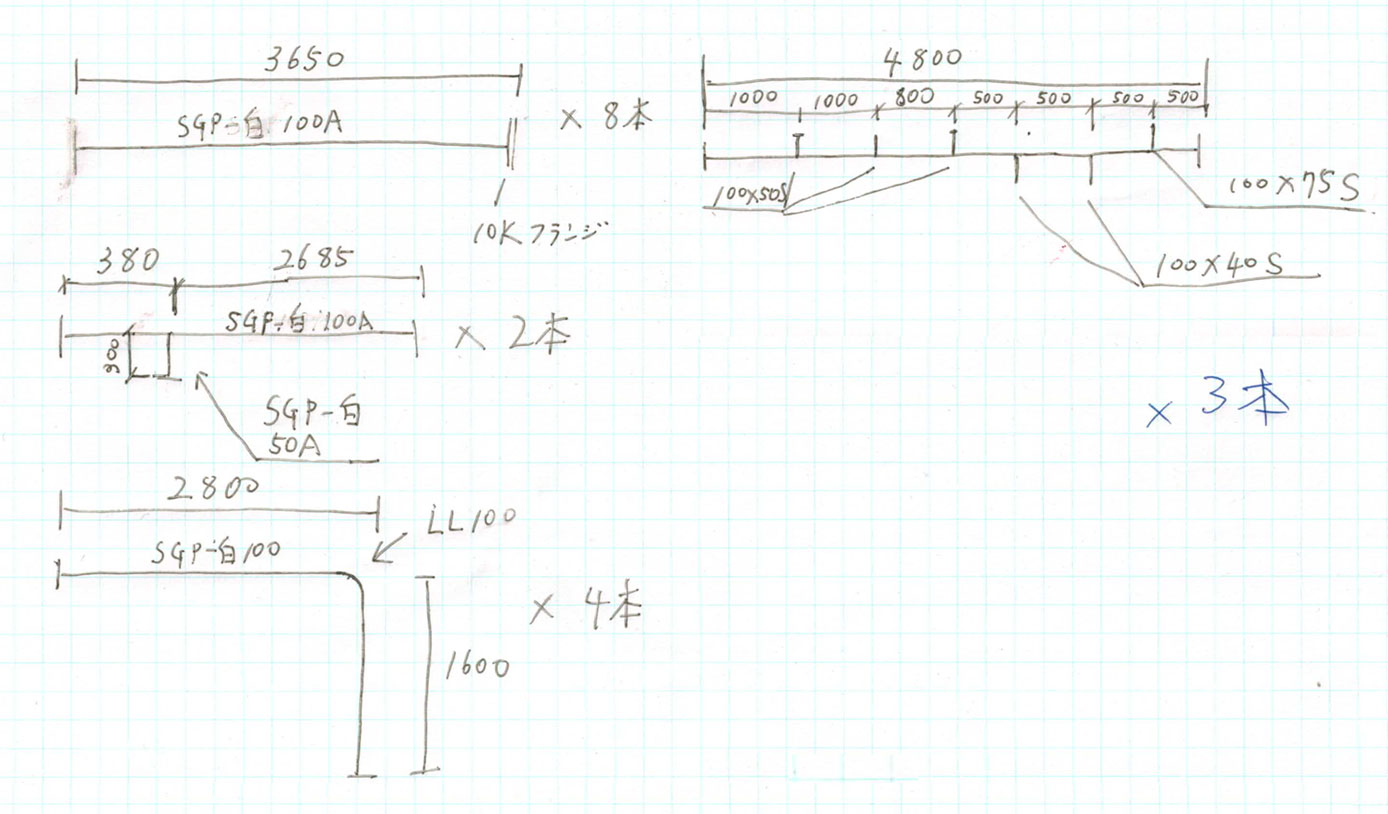 3650
SGP-白 100A
× 8本
10Kフランジ
380
2685
SGP-白 100A
× 2本
SGP-白
50A
2800
LL100
SGP-白100
× 4本
1600
4800
1000 1000 800 500 500 500 500
100×50S
100×75S
100×40S
× 3本